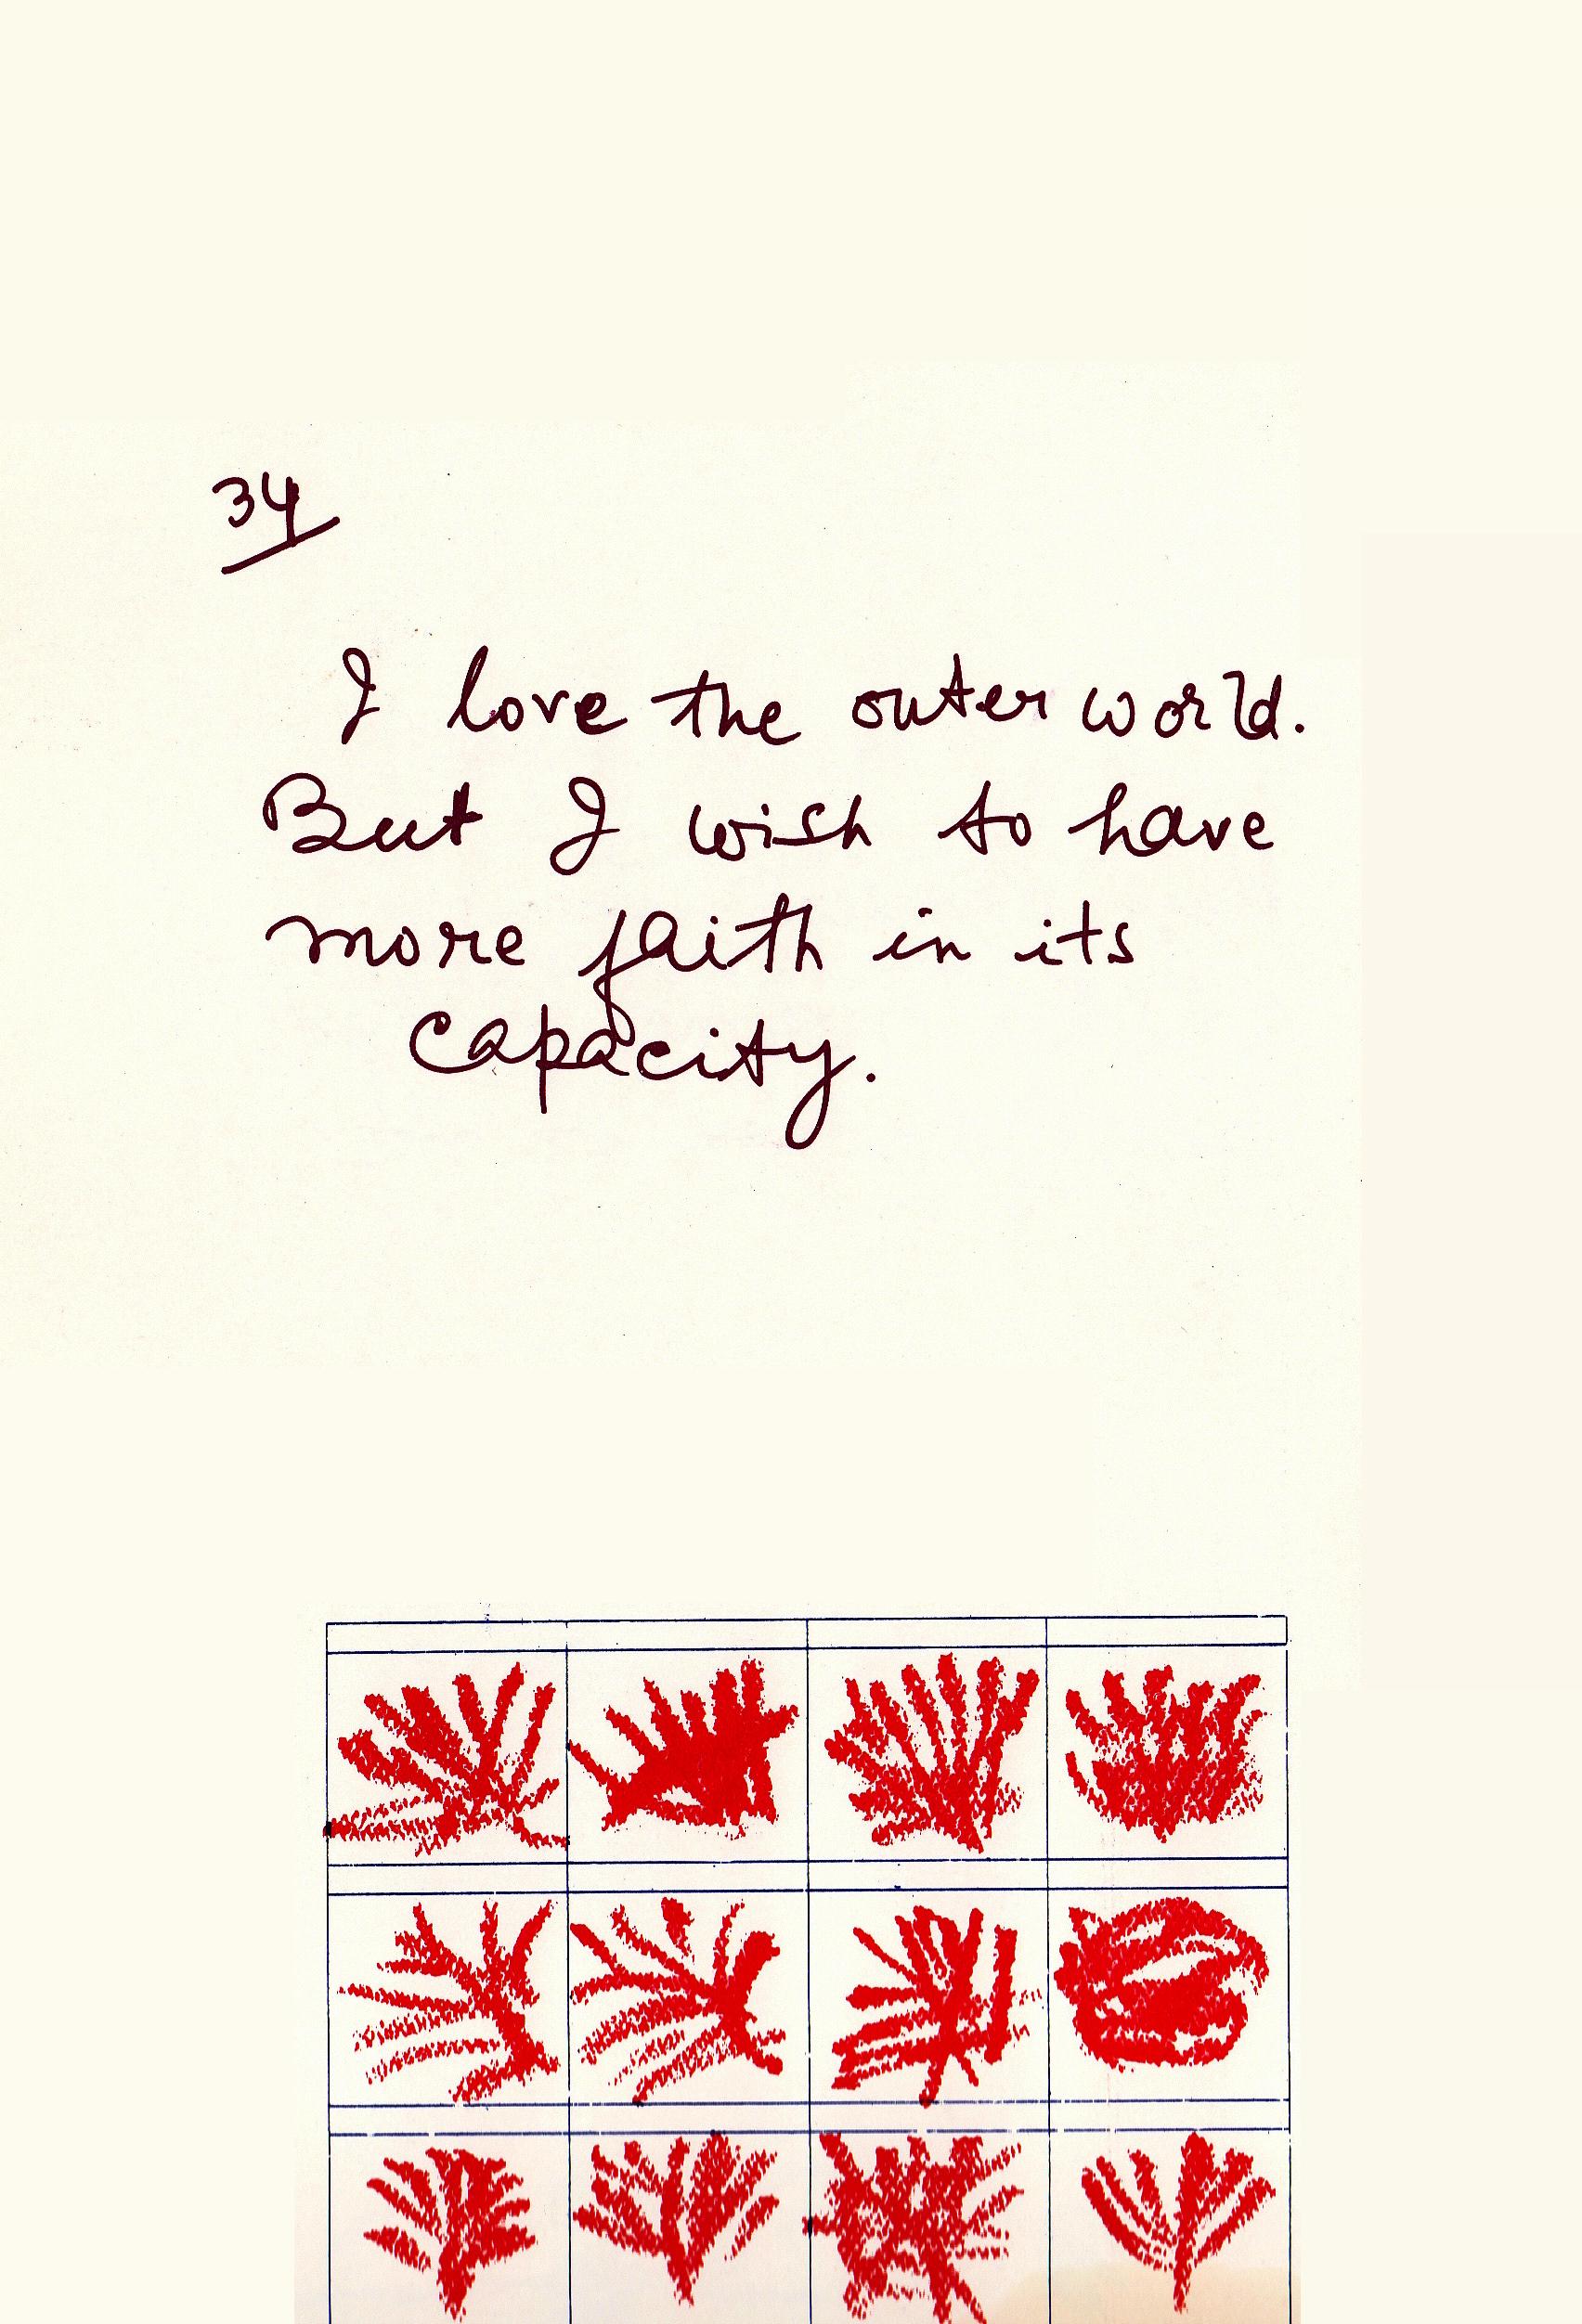 34
I love the outer world.
But I wish to have
more faith in its
capacity.